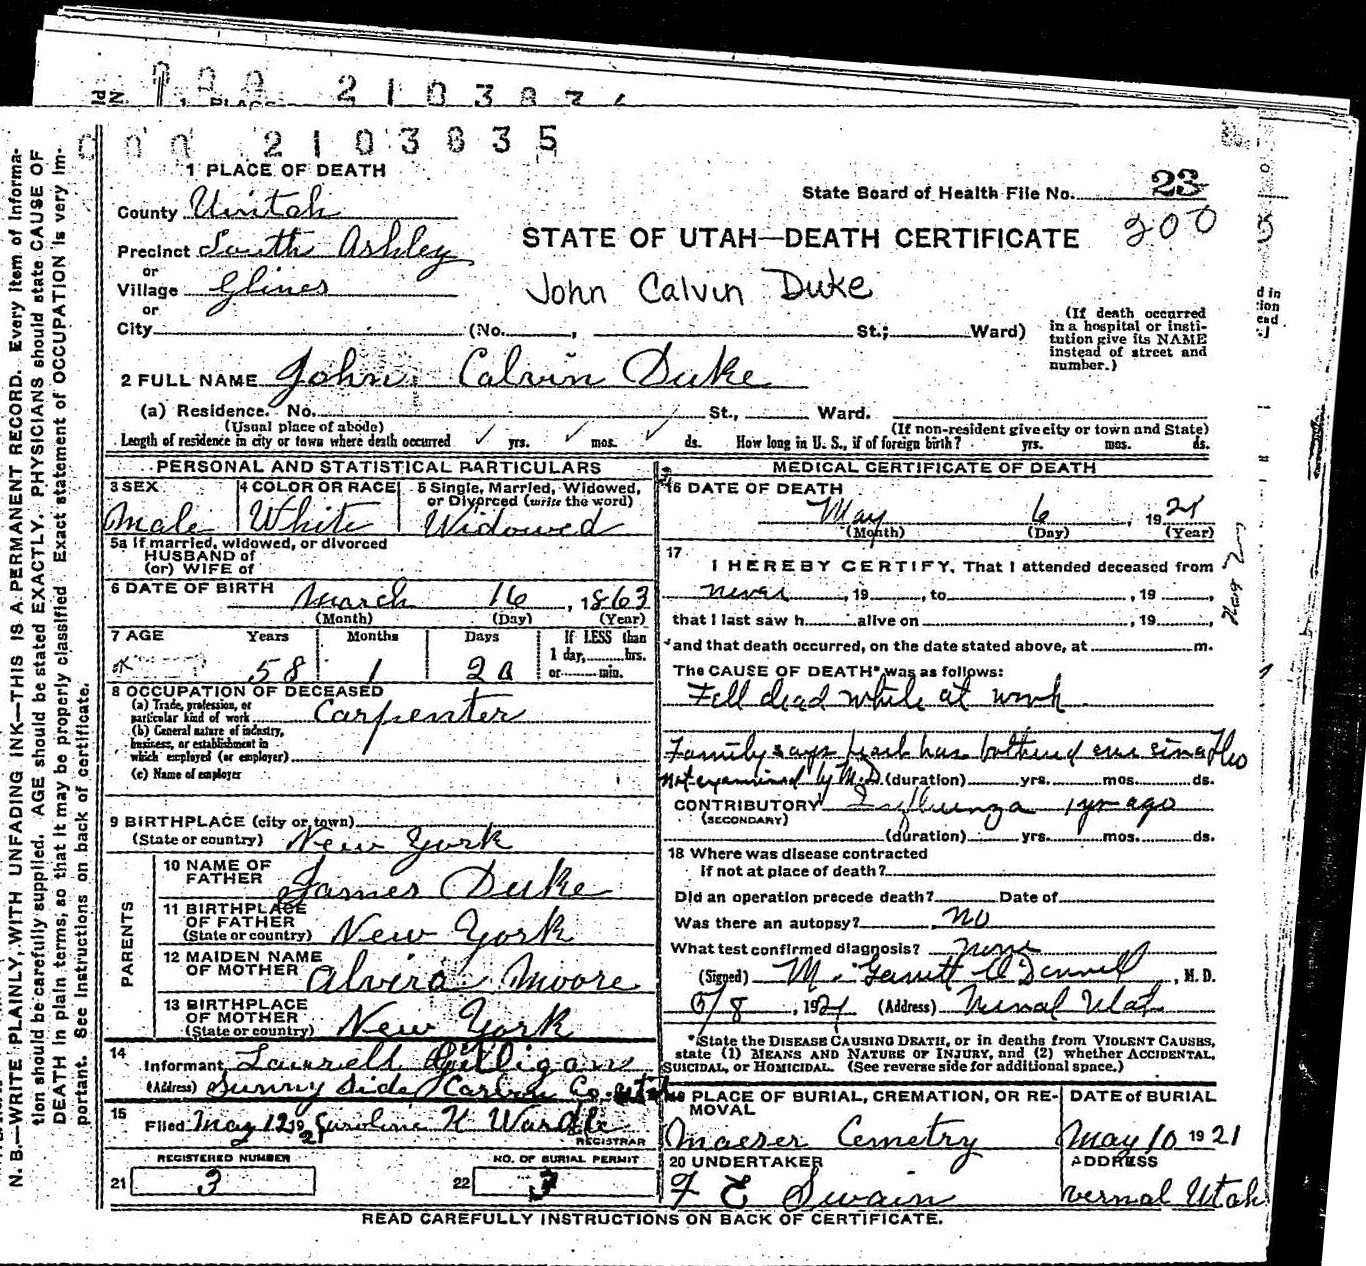 000 2103835
1 PLACE OF DEATH
State Board of Health File No. 23
200
County Uintah
STATE OF UTAH—DEATH CERTIFICATE
Precinct South Ashley
or
Village Glines
John Calvin Duke
or
City (No. , St.; Ward)
(If death occurred
in a hospital or insti-
tution give its NAME
instead of street and
number.)
2 FULL NAME John Calvin Duke
(a) Residence. No. St., Ward.
(Usual place of abode) (If non-resident give city or town and State)
Length of residence in city or town where death occurred yrs. mos. ds. How long in U. S., if of foreign birth? yrs. mos. ds.
PERSONAL AND STATISTICAL PARTICULARS
3 SEX 4 COLOR OR RACE 5 Single, Married, Widowed,
or Divorced (write the word)
Male White Widowed
5a If married, widowed, or divorced
HUSBAND of
(or) WIFE of
6 DATE OF BIRTH March 16, 1863
(Month) (Day) (Year)
7 AGE Years Months Days If LESS than
1 day, hrs.
or min.
58 1 20
8 OCCUPATION OF DECEASED
(a) Trade, profession, or
particular kind of work Carpenter
(b) General nature of industry,
business, or establishment in
which employed (or employer)
(c) Name of employer
9 BIRTHPLACE (city or town)
(State or country) New York
PARENTS
10 NAME OF
FATHER James Duke
11 BIRTHPLACE
OF FATHER
(State or country) New York
12 MAIDEN NAME
OF MOTHER Alvira Moore
13 BIRTHPLACE
OF MOTHER
(State or country) New York
14 Informant Laurell Gilligan
(Address) Sunny Side Carbon Co. Utah
15 Filed May 12 1921 Caroline K Wardle
REGISTRAR
REGISTERED NUMBER NO. OF BURIAL PERMIT
21 3 22 3
MEDICAL CERTIFICATE OF DEATH
16 DATE OF DEATH
May 6, 1921
(Month) (Day) (Year)
17
I HEREBY CERTIFY, That I attended deceased from
never, 19 , to , 19 ,
that I last saw h alive on , 19 ,
and that death occurred, on the date stated above, at m.
The CAUSE OF DEATH* was as follows:
Fell dead while at work
Family says heart has bothered ever since flu
Not examined by M.D. (duration) yrs. mos. ds.
CONTRIBUTORY Influenza 1 yr ago
(SECONDARY)
(duration) yrs. mos. ds.
18 Where was disease contracted
if not at place of death?
Did an operation precede death? Date of
Was there an autopsy? no
What test confirmed diagnosis? none
(Signed) M. , M. D.
5/8, 1921 (Address) Vernal Utah
*State the DISEASE CAUSING DEATH, or in deaths from VIOLENT CAUSES,
state (1) MEANS AND NATURE OF INJURY, and (2) whether ACCIDENTAL,
SUICIDAL, or HOMICIDAL. (See reverse side for additional space.)
PLACE OF BURIAL, CREMATION, OR RE-
MOVAL
DATE of BURIAL
Maeser Cemetry May 10 1921
20 UNDERTAKER ADDRESS
F E Swain Vernal Utah
READ CAREFULLY INSTRUCTIONS ON BACK OF CERTIFICATE.
N. B.—WRITE PLAINLY, WITH UNFADING INK—THIS IS A PERMANENT RECORD. Every item of informa-
tion should be carefully supplied. AGE should be stated EXACTLY. PHYSICIANS should state CAUSE OF
DEATH in plain terms, so that it may be properly classified. Exact statement of OCCUPATION is very im-
portant. See instructions on back of certificate.